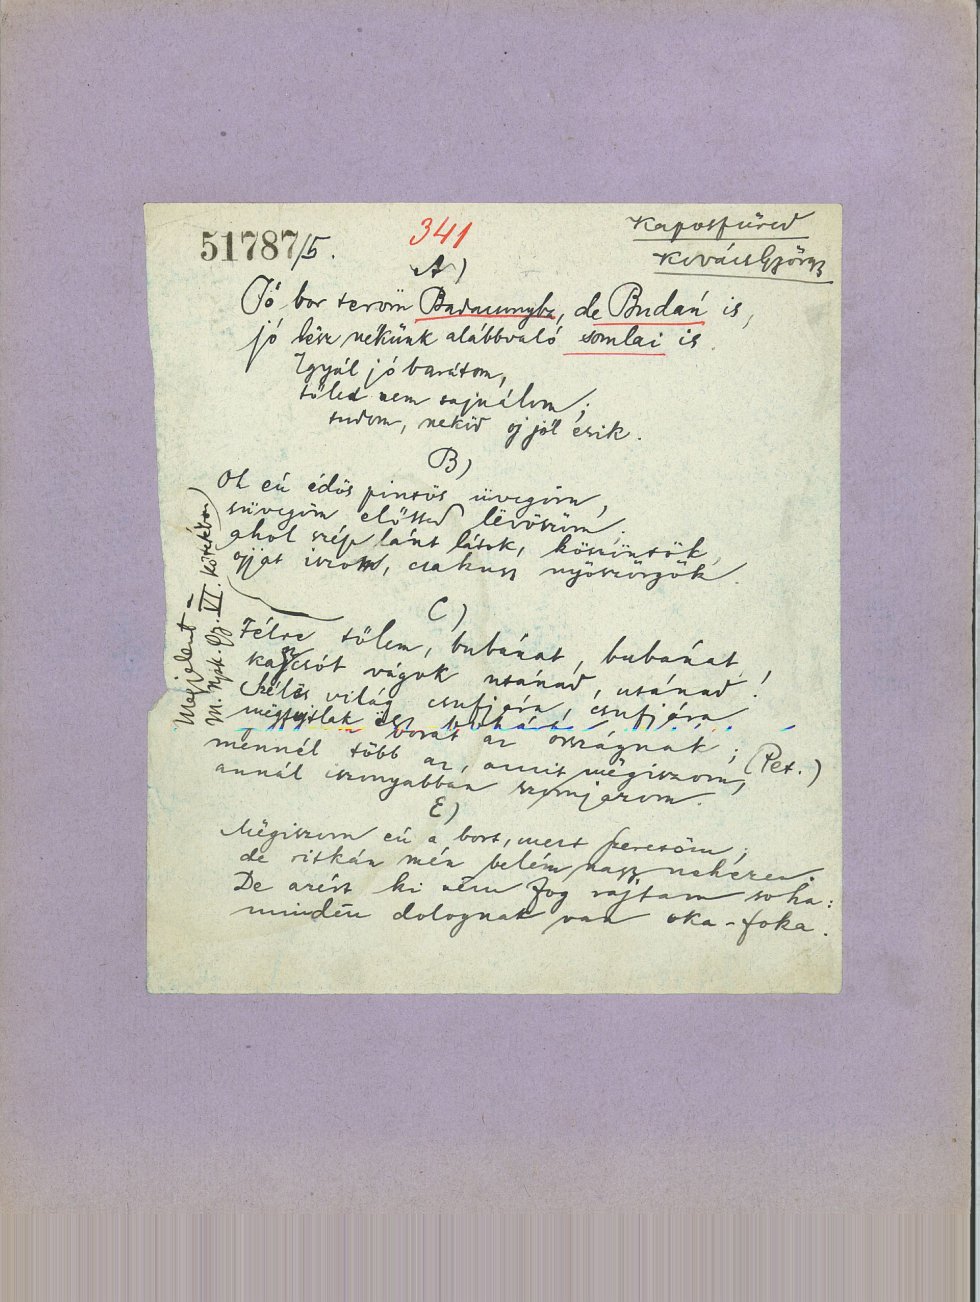 51787/5.
341
Kaposfüred
Kovács György
A)
Jó bor teröm Badacsonyba, de Budán is,
jó lësz nékünk alábbvaló somlai is.
Igyál jó barátom,
tőled nem sajnálom;
tudom, neköd ojjól esik.
B)
Oh éń édös pintös üvegöm,
süvegöm előtted lëvöszöm.
ahol szép lánt látok, köszöntök,
ojját iszom, csakúgy nyöszörgök.
C)
Félre tőlem, bubánat, bubánat!
kajcsót vágok utánad, utánad!
Szélös világ csufjára, csufjára
borát az országnak;
mennél több az, amit mëgiszom, (Pet.)
annál iszonyabban szomjazom.
E)
Mëgiszom éń a bort, mert szeretöm;
de ritkán mén belém nagy nehezen.
De azért ki nëm fog rajtam soha:
mindën dolognak van oka-foka.
Megjelent a
M. Npk. Gy. VI. kötetében)